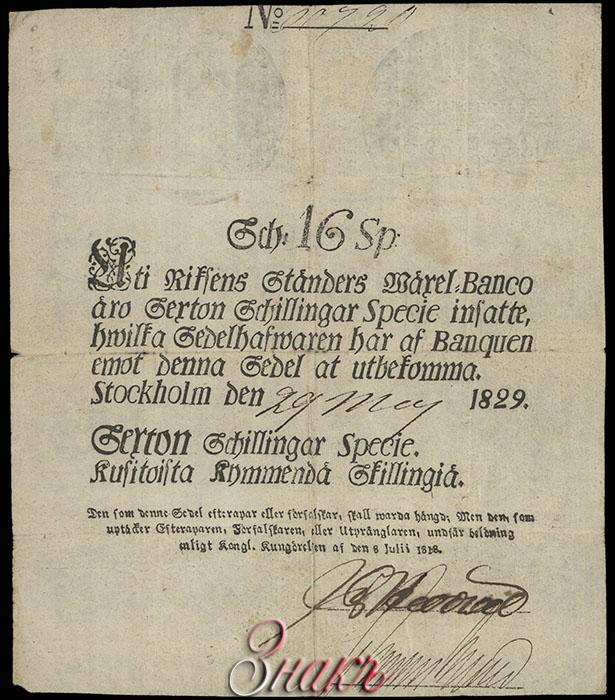 No 720
Sch: 16 Sp
Uti Riksens Ständers Wäxel-Banco
äro Sexton Schillingar Specie insatte,
hwilka Sedelhafwaren har af Banquen
emot denna Sedel at utbekomma.
Stockholm den 29 May 1829.
Sexton Schillingar Specie.
Kusitoista Kymmendä Skillingiä.
Den som denne Sedel efterapar eller förfalskar, skall warda hängd; Men den, som
uptäcker Efteraparen, Förfalskaren, eller Utprånglaren, undfår belöning
enligt Kongl. Kungörelsen af den 8 Julii 1818.
Знакъ